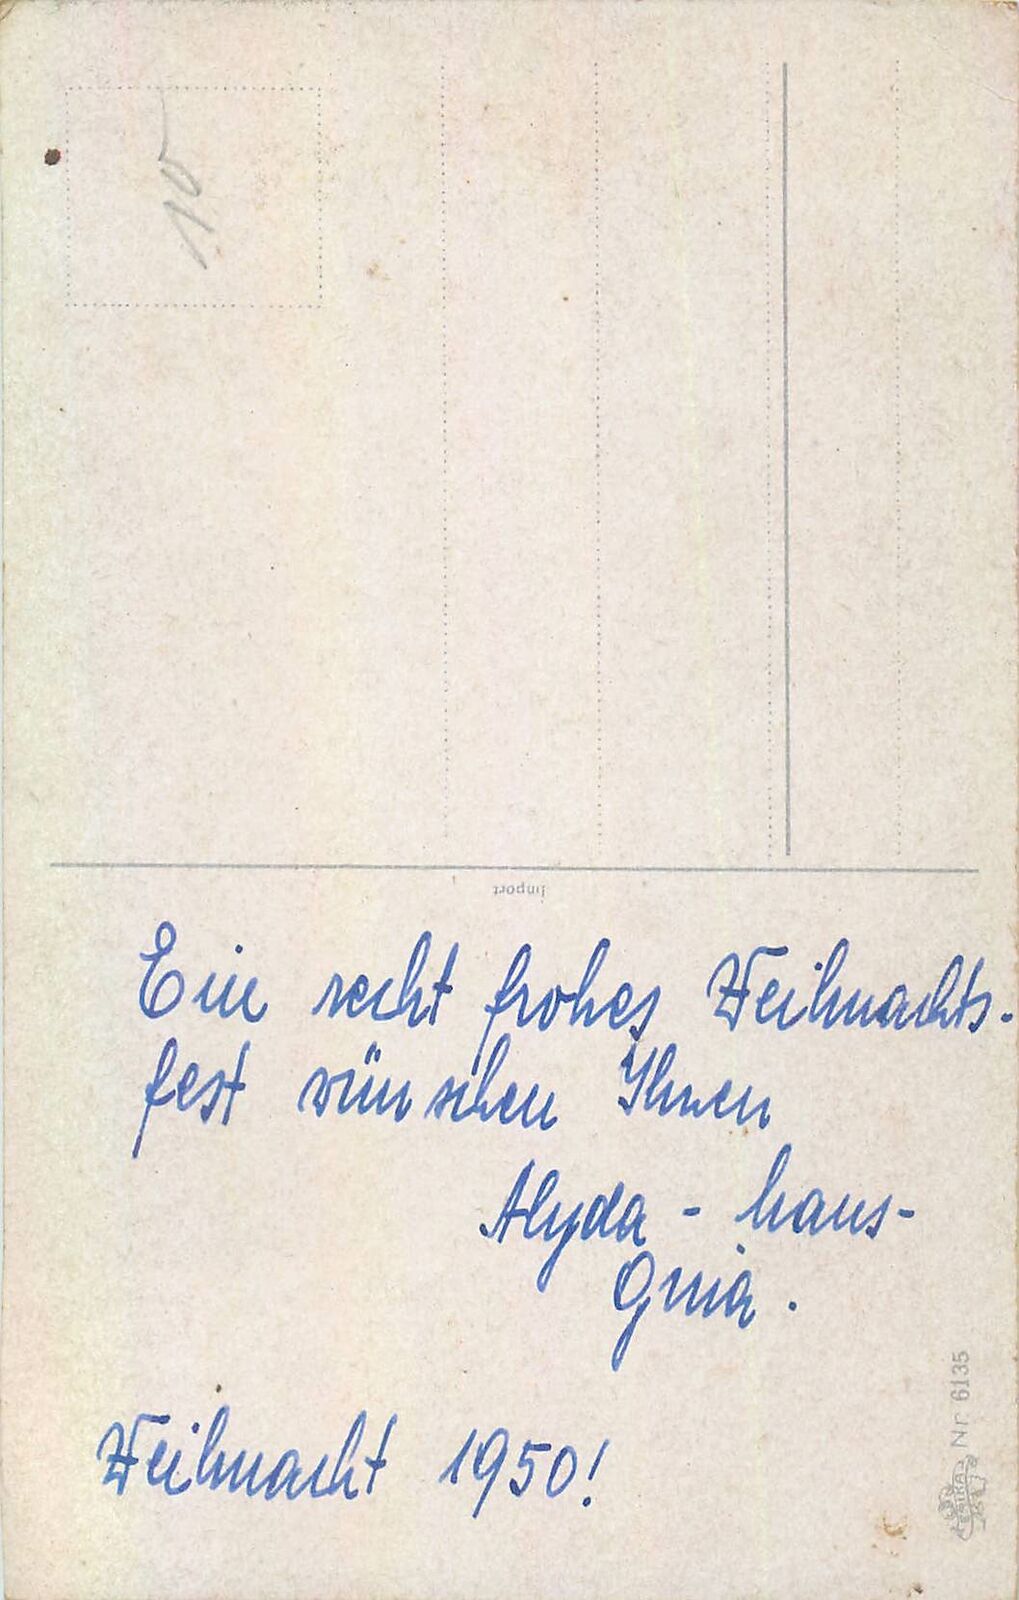 10
Import
Ein recht frohes Weihnachts-
fest wünschen Ihnen
Alyda - Haus-
Gnia.
Weihnacht 1950!
Nr. 6135